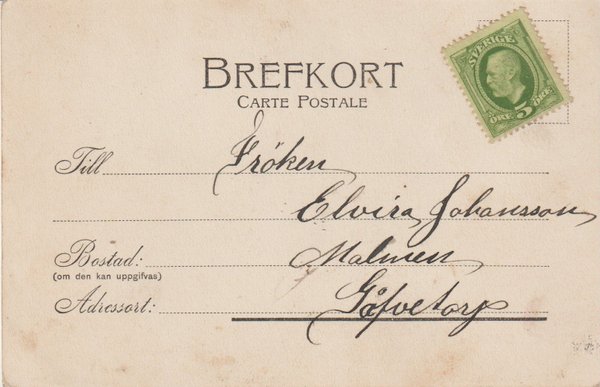 BREFKORT
CARTE POSTALE
SVERIGE
ÖRE 5 ÖRE
Till Fröken
Elvira Johansson
Bostad: Malmen
(om den kan uppgifvas)
Adressort: Gåfvetorp